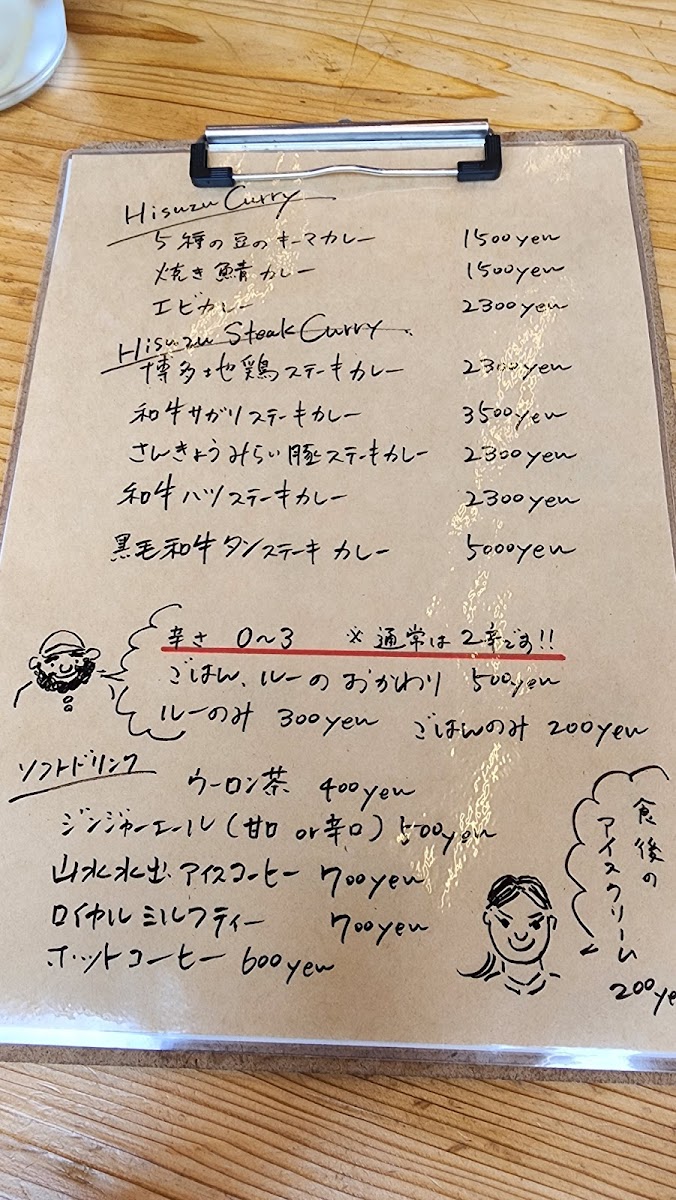 Hisuzu Curry
5種の豆のキーマカレー 1500yen
焼き鯖カレー 1500yen
エビカレー 2300yen
Hisuzu Steak Curry
博多地鶏ステーキカレー 2300yen
和牛サガリステーキカレー 3500yen
さんきょうみらい豚ステーキカレー 2300yen
和牛ハツステーキカレー 2300yen
黒毛和牛タンステーキカレー 5000yen
辛さ 0~3 ※通常は2辛です!!
ごはん、ルーのおかわり 500yen
ルーのみ 300yen ごはんのみ 200yen
ソフトドリンク
ウーロン茶 400yen
ジンジャーエール(甘口 or 辛口) 500yen
山水水出アイスコーヒー 700yen
ロイヤルミルクティー 700yen
ホットコーヒー 600yen
食後の
アイスクリーム
200ye